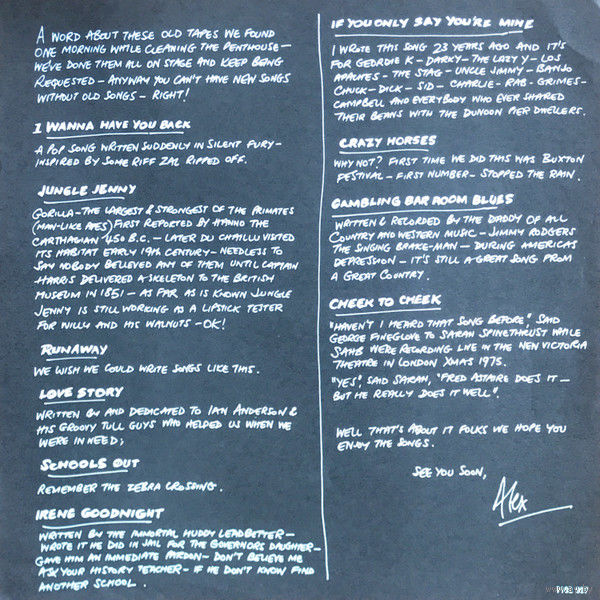 A WORD ABOUT THESE OLD TAPES WE FOUND
ONE MORNING WHILE CLEANING THE PENTHOUSE —
WE'VE DONE THEM ALL ON STAGE AND KEEP BEING
REQUESTED — ANYWAY YOU CAN'T HAVE NEW SONGS
WITHOUT OLD SONGS — RIGHT!
I WANNA HAVE YOU BACK
A POP SONG WRITTEN SUDDENLY IN SILENT FURY —
INSPIRED BY SOME RIFF ZAL RIPPED OFF.
JUNGLE JENNY
GORILLA — THE LARGEST & STRONGEST OF THE PRIMATES
(MAN-LIKE APES) FIRST REPORTED BY HANNO THE
CARTHAGIAN 450 B.C. — LATER DU CHAILLU VISITED
ITS HABITAT EARLY 19TH CENTURY — NEEDLESS TO
SAY NOBODY BELIEVED ANY OF THEM UNTIL CAPTAIN
HARRIS DELIVERED A SKELETON TO THE BRITISH
MUSEUM IN 1851 — AS FAR AS IS KNOWN JUNGLE
JENNY IS STILL WORKING AS A LIPSTICK TESTER
FOR WILLY AND HIS WALNUTS — OK!
RUNAWAY
WE WISH WE COULD WRITE SONGS LIKE THIS.
LOVE STORY
WRITTEN BY AND DEDICATED TO IAN ANDERSON &
HIS GROOVY TULL GUYS WHO HELPED US WHEN WE
WERE IN NEED;
SCHOOLS OUT
REMEMBER THE ZEBRA CROSSING.
IRENE GOODNIGHT
WRITTEN BY THE IMMORTAL HUDDY LEADBETTER —
WROTE IT HE DID IN JAIL FOR THE GOVERNORS DAUGHTER —
GAVE HIM AN IMMEDIATE PARDON — DON'T BELIEVE ME
ASK YOUR HISTORY TEACHER — IF HE DON'T KNOW FIND
ANOTHER SCHOOL.
IF YOU ONLY SAY YOU'RE MINE
I WROTE THIS SONG 23 YEARS AGO AND IT'S
FOR GEORDIE K — DARKY — THE LAZY Y — LOS
APACHES — THE STAG — UNCLE JIMMY — BANJO
CHUCK — DICK — SID — CHARLIE — RAB — GRIMES —
CAMPBELL AND EVERYBODY WHO EVER SHARED
THEIR BEANS WITH THE DUNOON PIER DWELLERS.
CRAZY HORSES
WHY NOT? FIRST TIME WE DID THIS WAS BUXTON
FESTIVAL — FIRST NUMBER — STOPPED THE RAIN.
GAMBLING BAR ROOM BLUES
WRITTEN & RECORDED BY THE DADDY OF ALL
COUNTRY AND WESTERN MUSIC — JIMMY RODGERS
THE SINGING BRAKE-MAN — DURING AMERICAS
DEPRESSION — IT'S STILL A GREAT SONG FROM
A GREAT COUNTRY.
CHEEK TO CHEEK
"HAVEN'T I HEARD THAT SONG BEFORE", SAID
GEORGE FINEGLOVE TO SARAH SPINETHRUST WHILE
SAHB WERE RECORDING LIVE IN THE NEW VICTORIA
THEATRE IN LONDON XMAS 1975.
"YES", SAID SARAH, "FRED ASTAIRE DOES IT —
BUT HE REALLY DOES IT WELL".
WELL THAT'S ABOUT IT FOLKS WE HOPE YOU
ENJOY THE SONGS.
SEE YOU SOON,
Alex